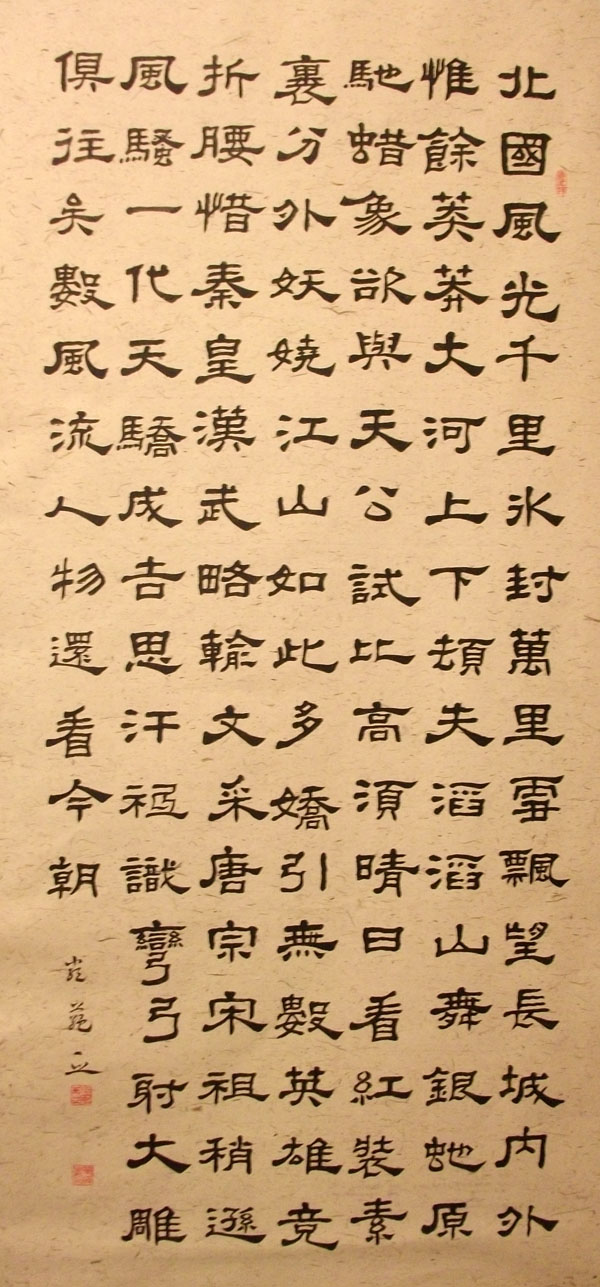 北國風光千里氷封萬里雪飄望長城內外
惟餘莽莽大河上下頓失滔滔山舞銀虵原
馳蜡象欲與天公試比高須晴日看紅裝素
裹分外妖嬈江山如此多嬌引無數英雄竞
折腰惜秦皇漢武略輸文采唐宗宋祖稍遜
風騷一代天驕成吉思汗祗識彎弓射大雕
俱往矣數風流人物還看今朝